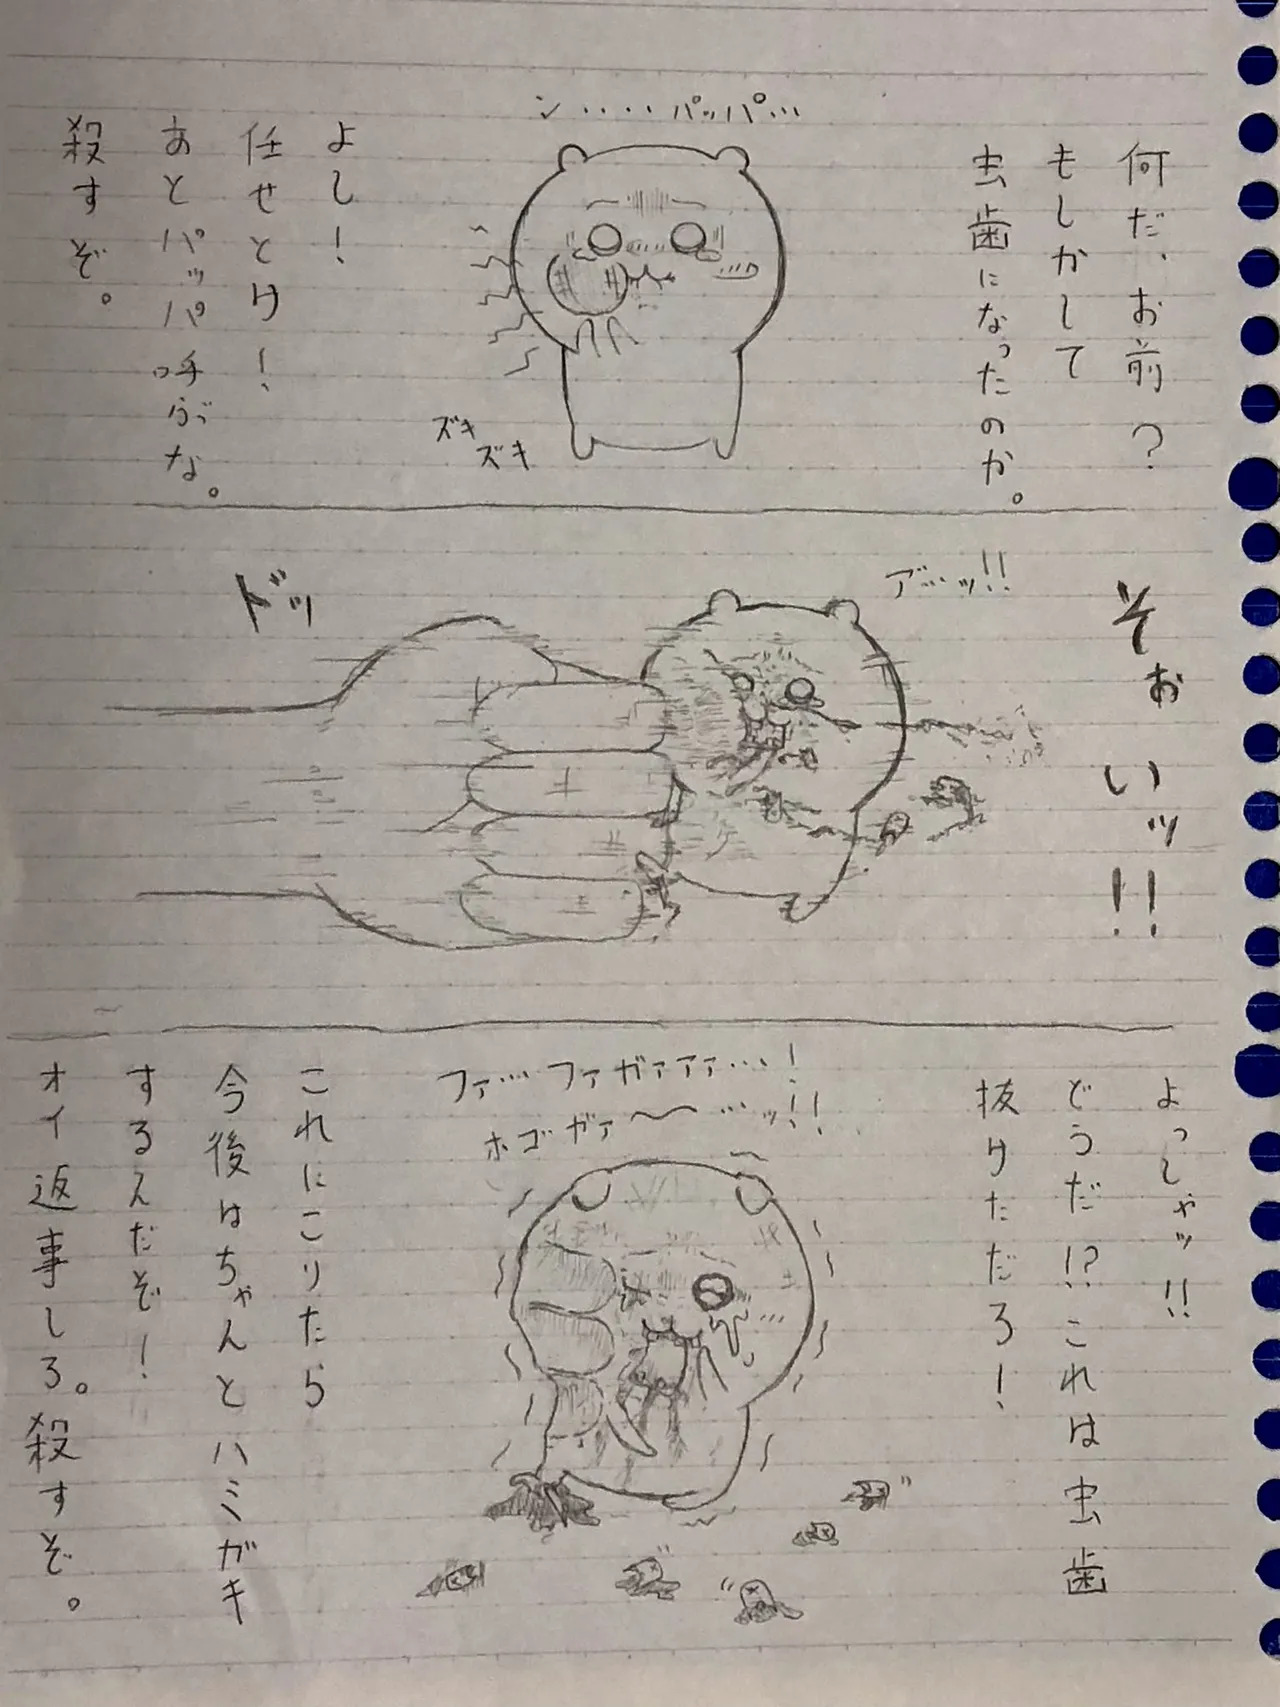 何だ、お前？
もしかして
虫歯になったのか。
ン‥‥パッパ…
ズキ
ズキ
よし！
任せとけ！
あとパッパ呼ぶな。
殺すぞ。
そぉいッ!!
ア…ッ!!
ドッ
よっしゃッ!!
どうだ!?これは虫歯
抜けただろ！
ファ…ファガァアァ…！
ホゴガァ〜〜…ッ!!
これにこりたら
今後はちゃんとハミガキ
するんだぞ！
オイ返事しろ。殺すぞ。